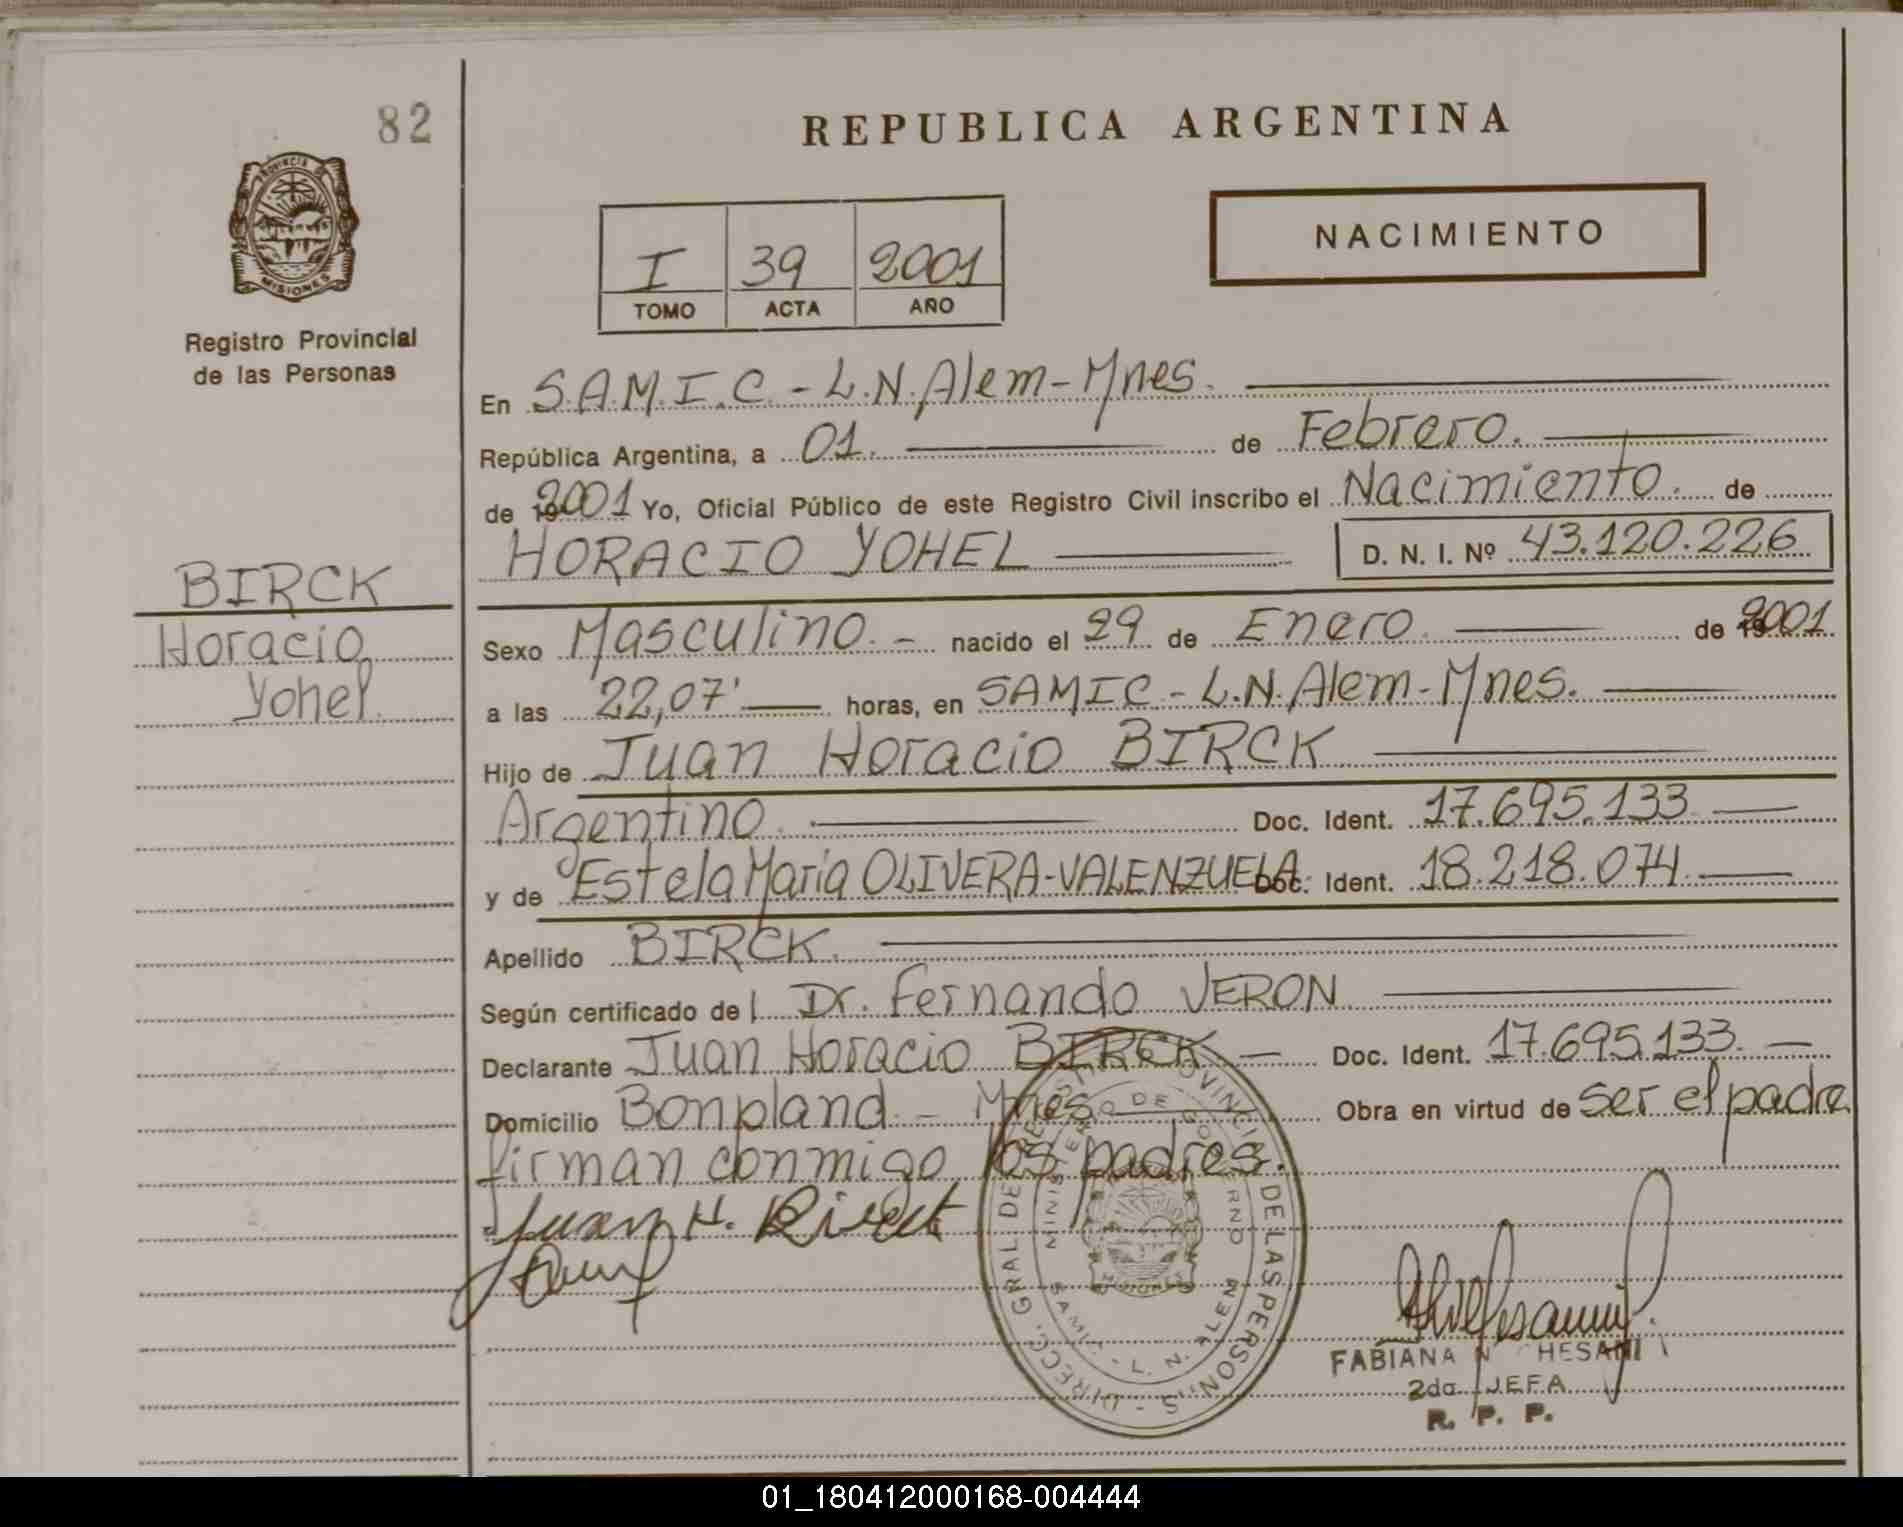 82
REPUBLICA ARGENTINA
PROVINCIA DE
MISIONES
Registro Provincial
de las Personas
I 39 2001
TOMO ACTA AÑO
NACIMIENTO
En S.A.M.I.C. - L.N. Alem - Mnes.
República Argentina, a 01. de Febrero.
de 2001 Yo, Oficial Público de este Registro Civil inscribo el Nacimiento. de
HORACIO YOHEL D. N. I. Nº 43.120.226
BIRCK
Horacio
Yohel.
Sexo Masculino. - nacido el 29 de Enero de 2001
a las 22,07' horas, en SAMIC - L.N. Alem - Mnes.
Hijo de Juan Horacio BIRCK
Argentino. Doc. Ident. 17.695.133
y de Estela María OLIVERA-VALENZUELA Doc. Ident. 18.218.074
Apellido BIRCK.
Según certificado del Dr. Fernando VERON
Declarante Juan Horacio BIRCK - Doc. Ident. 17.695.133. -
Domicilio Bonpland. - Mnes Obra en virtud de ser el padre
firman conmigo los padres.
Juan H. Birck
DIRECC. GRAL DE REGISTRO PROVINCIAL DE LAS PERSONAS
MINISTERIO DE GOBIERNO
SAMIC - L. N. ALEM
MISIONES
FABIANA N CHESANI
2da JEFA
R. P. P.
01_180412000168-004444